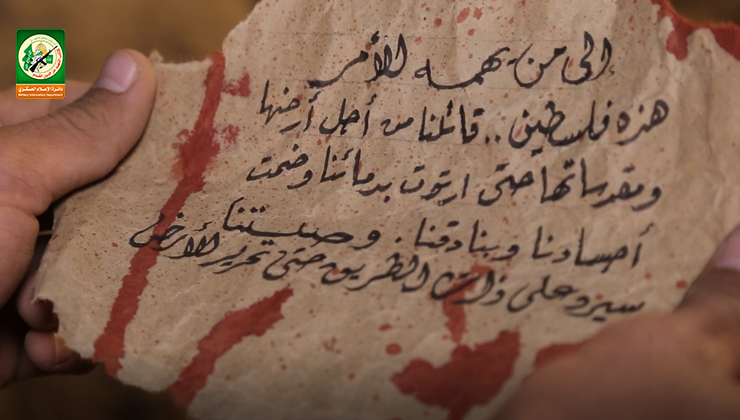 دائرة الإعلام العسكري
Military Information Department
إلى من يهمه الأمر
هذه فلسطين.. قاتلنا من أجل أرضها
ومقدساتها حتى ارتوت بدمائنا وضمت
أجسادنا وبنادقنا. وصيتنا
سيرو على ذات الطريق حتى تحرير الأرض